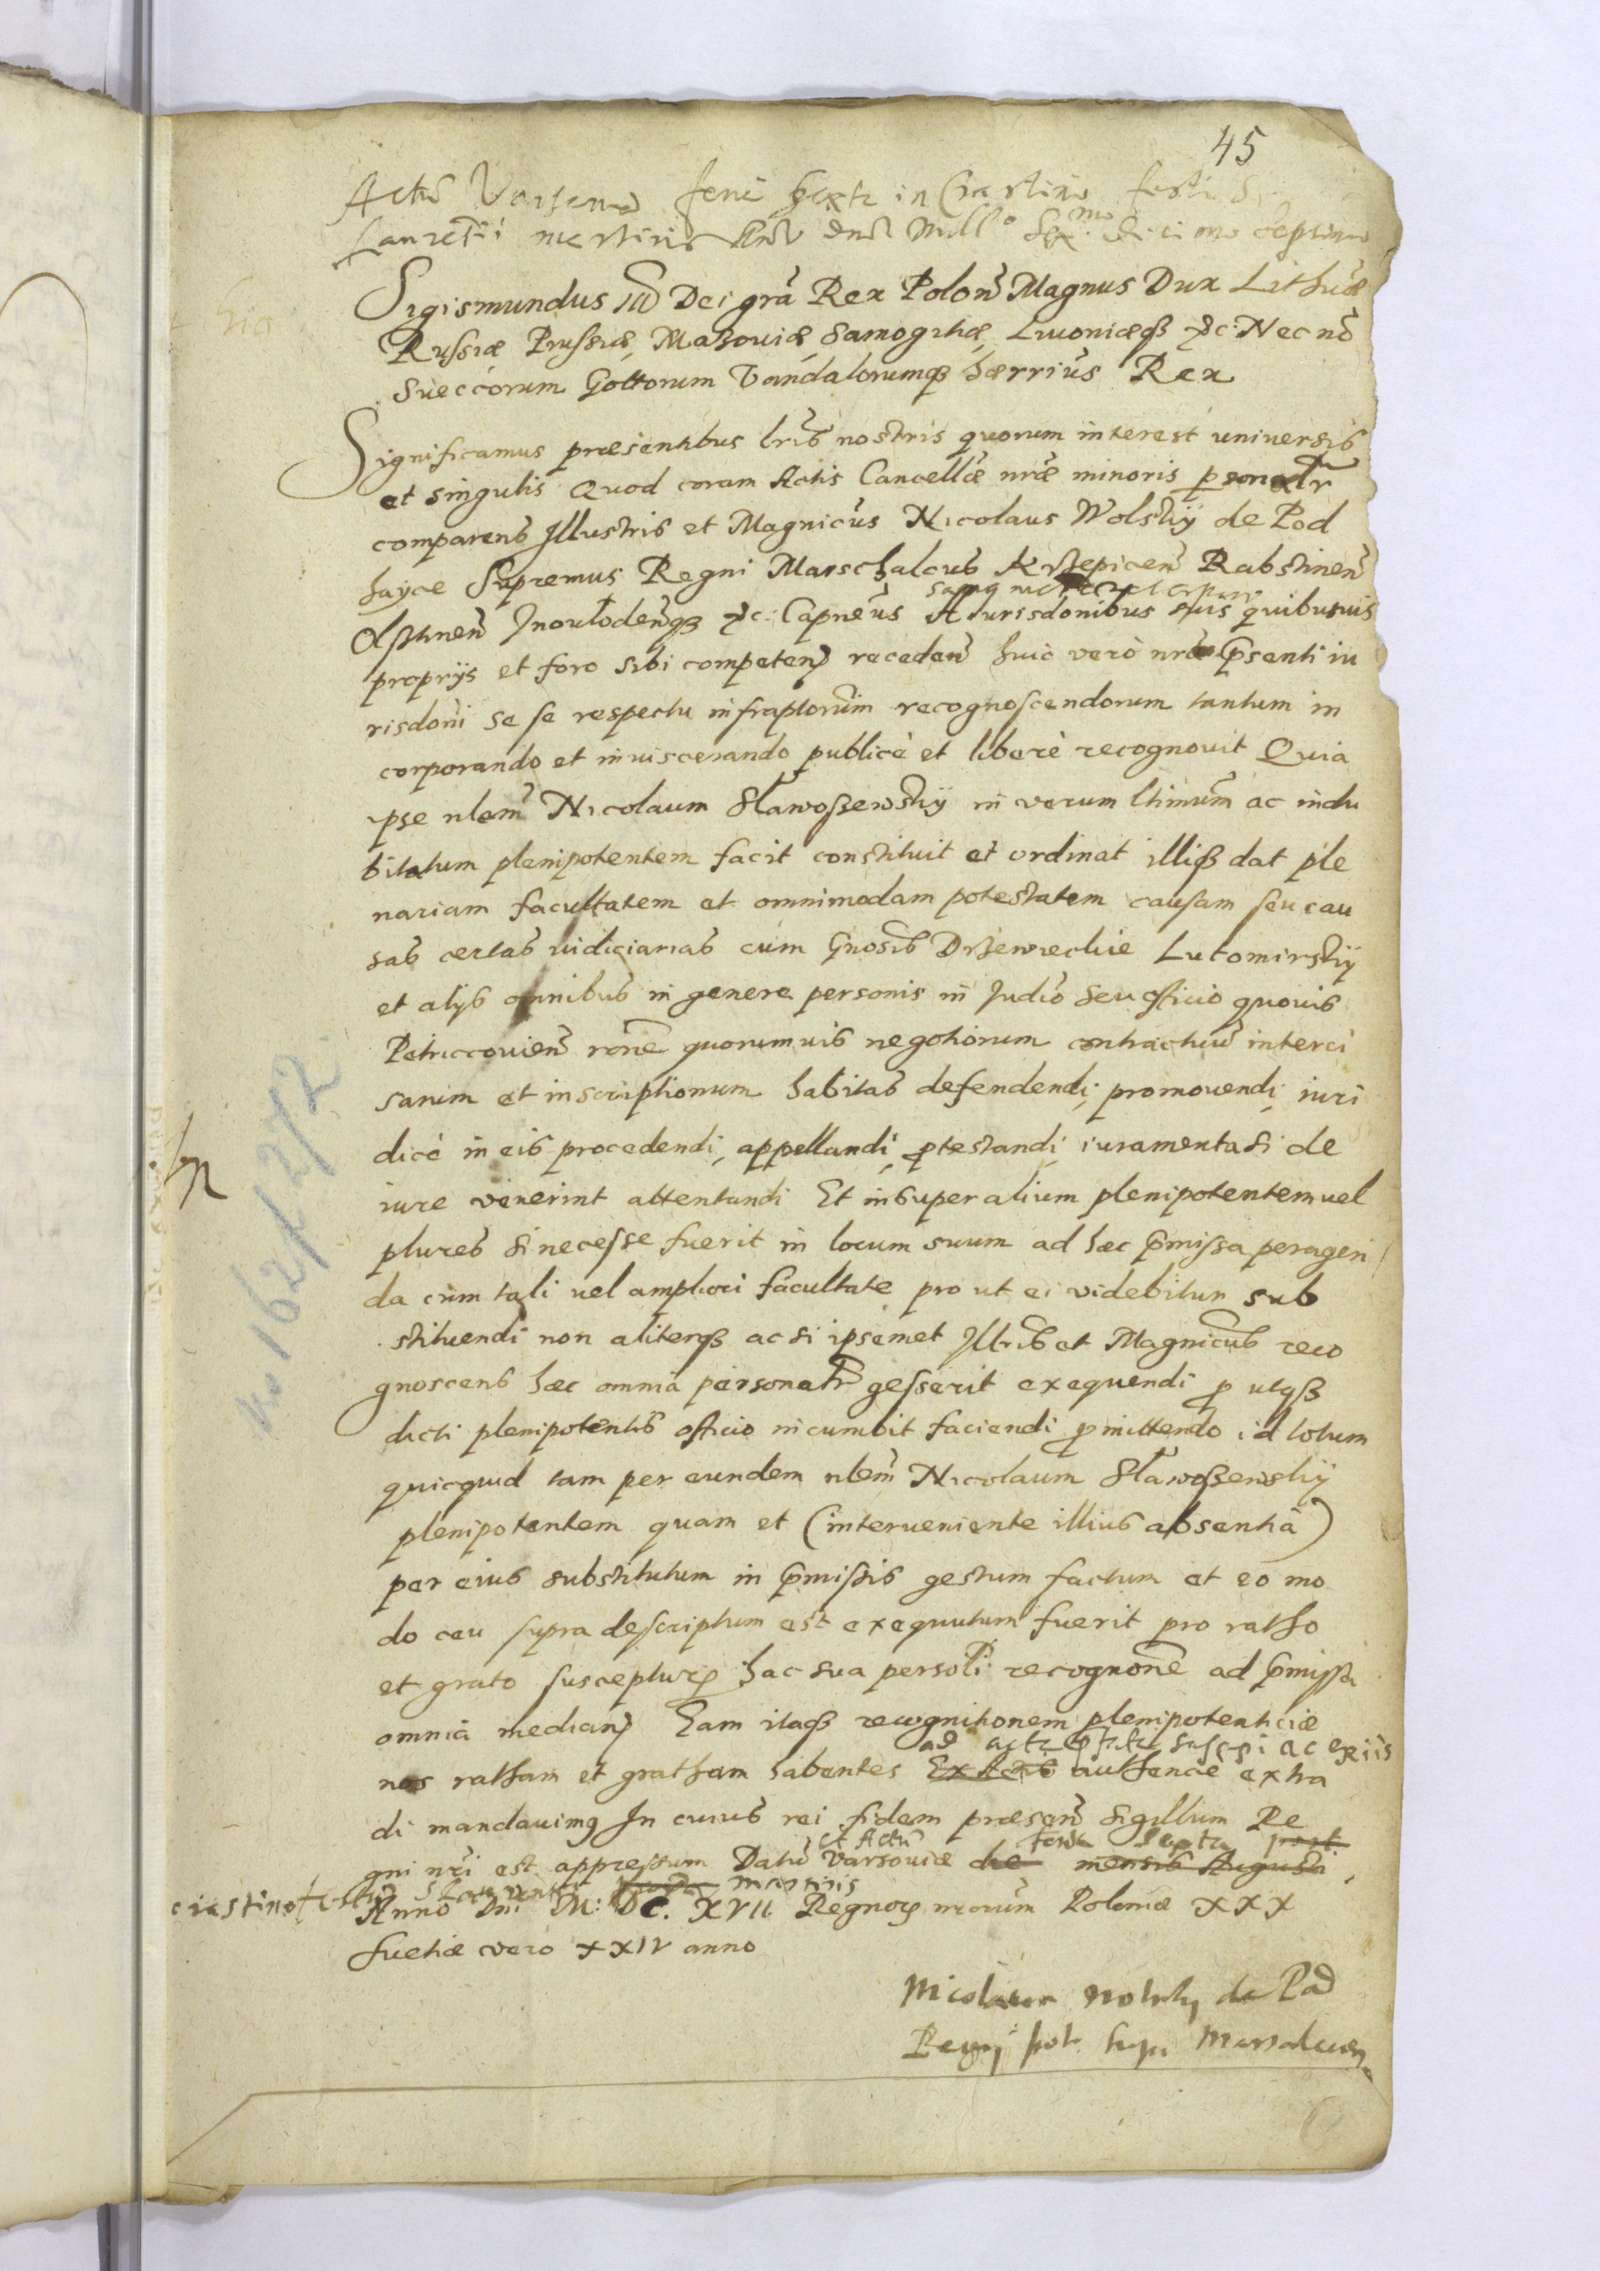 45
Actũ Varsaviæ feria sexta in Crastino festi S.
Laurẽtii martiris Anno Dnĩ Mill⁰ Sex.mo decimo septimo
Sigismundus IIĨ Dei grã Rex Polonẽ Magnus Dux Lithũæ
Russiæ Prussiæ, Mazoviæ Samogitiæ Livoniæq3 &c: Nec nõ
Sueccorum Gottorum Vandalorumq3 hærrius Rex
Significamus præsentibus lrĩs nostris quorum interest universis
et singulis Quod coram Actis Cancellæ nrẽ minoris personalr
comparens Illustris et Magnicus Nicolaus Wolskÿ de Pod
hayce Supremus Regni Marschalcus Krzepicen Rabstinen
Olsstinen Inoulodenq3 &c: Capneus A iurisdonibus suis quibusuis
proprijs et foro sibi competen recedeñ huic verò nræ psenti iu
risdoni se se respectu infraptorum recognoscendorum tantum in
corporando et inviscerando publicè et liberè recognouit Quia
ipse nlem Nicolaum Sławoszewskÿ in verum ltimum ac indu
bitatum plenipotentem facit constituit et ordinat illiq3 dat ple
nariam facultatem et omnimodam potestatem causam seu cau
sas certas iudiciarias cum Gnosis Drzewieckie Lutomirskÿ
et alijs omnibus in genere personis in Judio seu officio quouis
Petriccouien rone quorumuis negotiorum contractuũ interci
sarum et inscriptionum habitas defendendi, promouendi, iuri
dicè in eis procedendi, appellandi, ptestandi, iuramenta si de
iure venerint attentandi Et insuper alium plenipotentem uel
plures si necesse fuerit in locum suum ad hæc pmissa peragen
da cum tali uel ampliori facultate pro ut ei videbitur sub
stituendi non aliterq3 ac si ipsemet Illris et Magnicus reco
gnoscens hæc omnia personalr gesserit exequendi p utq3
dicti plenipotentis officio incumbit faciendi pmittendo id totum
quicquid tam per eundem nlem Nicolaum Sławoszewskÿ
plenipotentem quam et (interueniente illius absentiâ)
per eius substitutum in pmissis gestum factum et eo mo
do ceu supra descriptum est exequutum fuerit pro ratho
et grato suscepturũ hac sua persoli recognone ad pmissa
omnia median Eam itaq3 recognitionem plenipotentiæ
ad acta suscepi ac ex iis
nos ratham et gratham habentes Ex Actis authence extra
di mandauimq In cuius rei fidem præsen sigillum Re
gni nri est appressum Datũ et Actũ Varsoviæ die feria sexta post mensis Augusti
crastino festi S Laurentii martiris
Anno Dni M: DC. XVII Regnoꝝ nrorum Poloniæ XXX
Suetiæ vero XXIV anno
Nicolaus Wolsky de Pod
Regni pol. supr Marsalcus
162/272